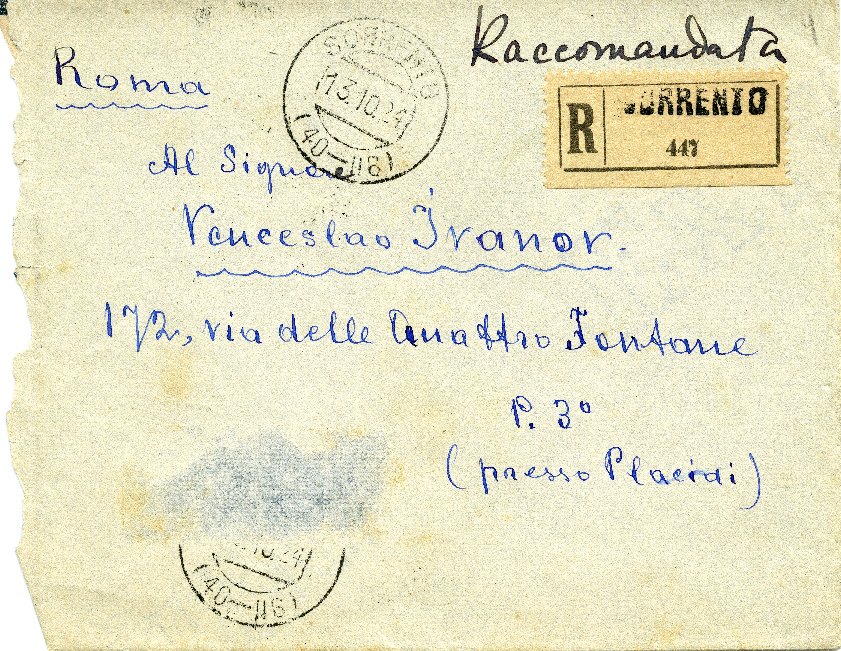 Raccomandata
Roma
SORRENTO
13.10.24
(40-118)
R SORRENTO
447
Al Signore
Venceslao Ivanov.
172, via delle Quattro Fontane
P. 3º
(presso Placidi)
10.24
(40-118)